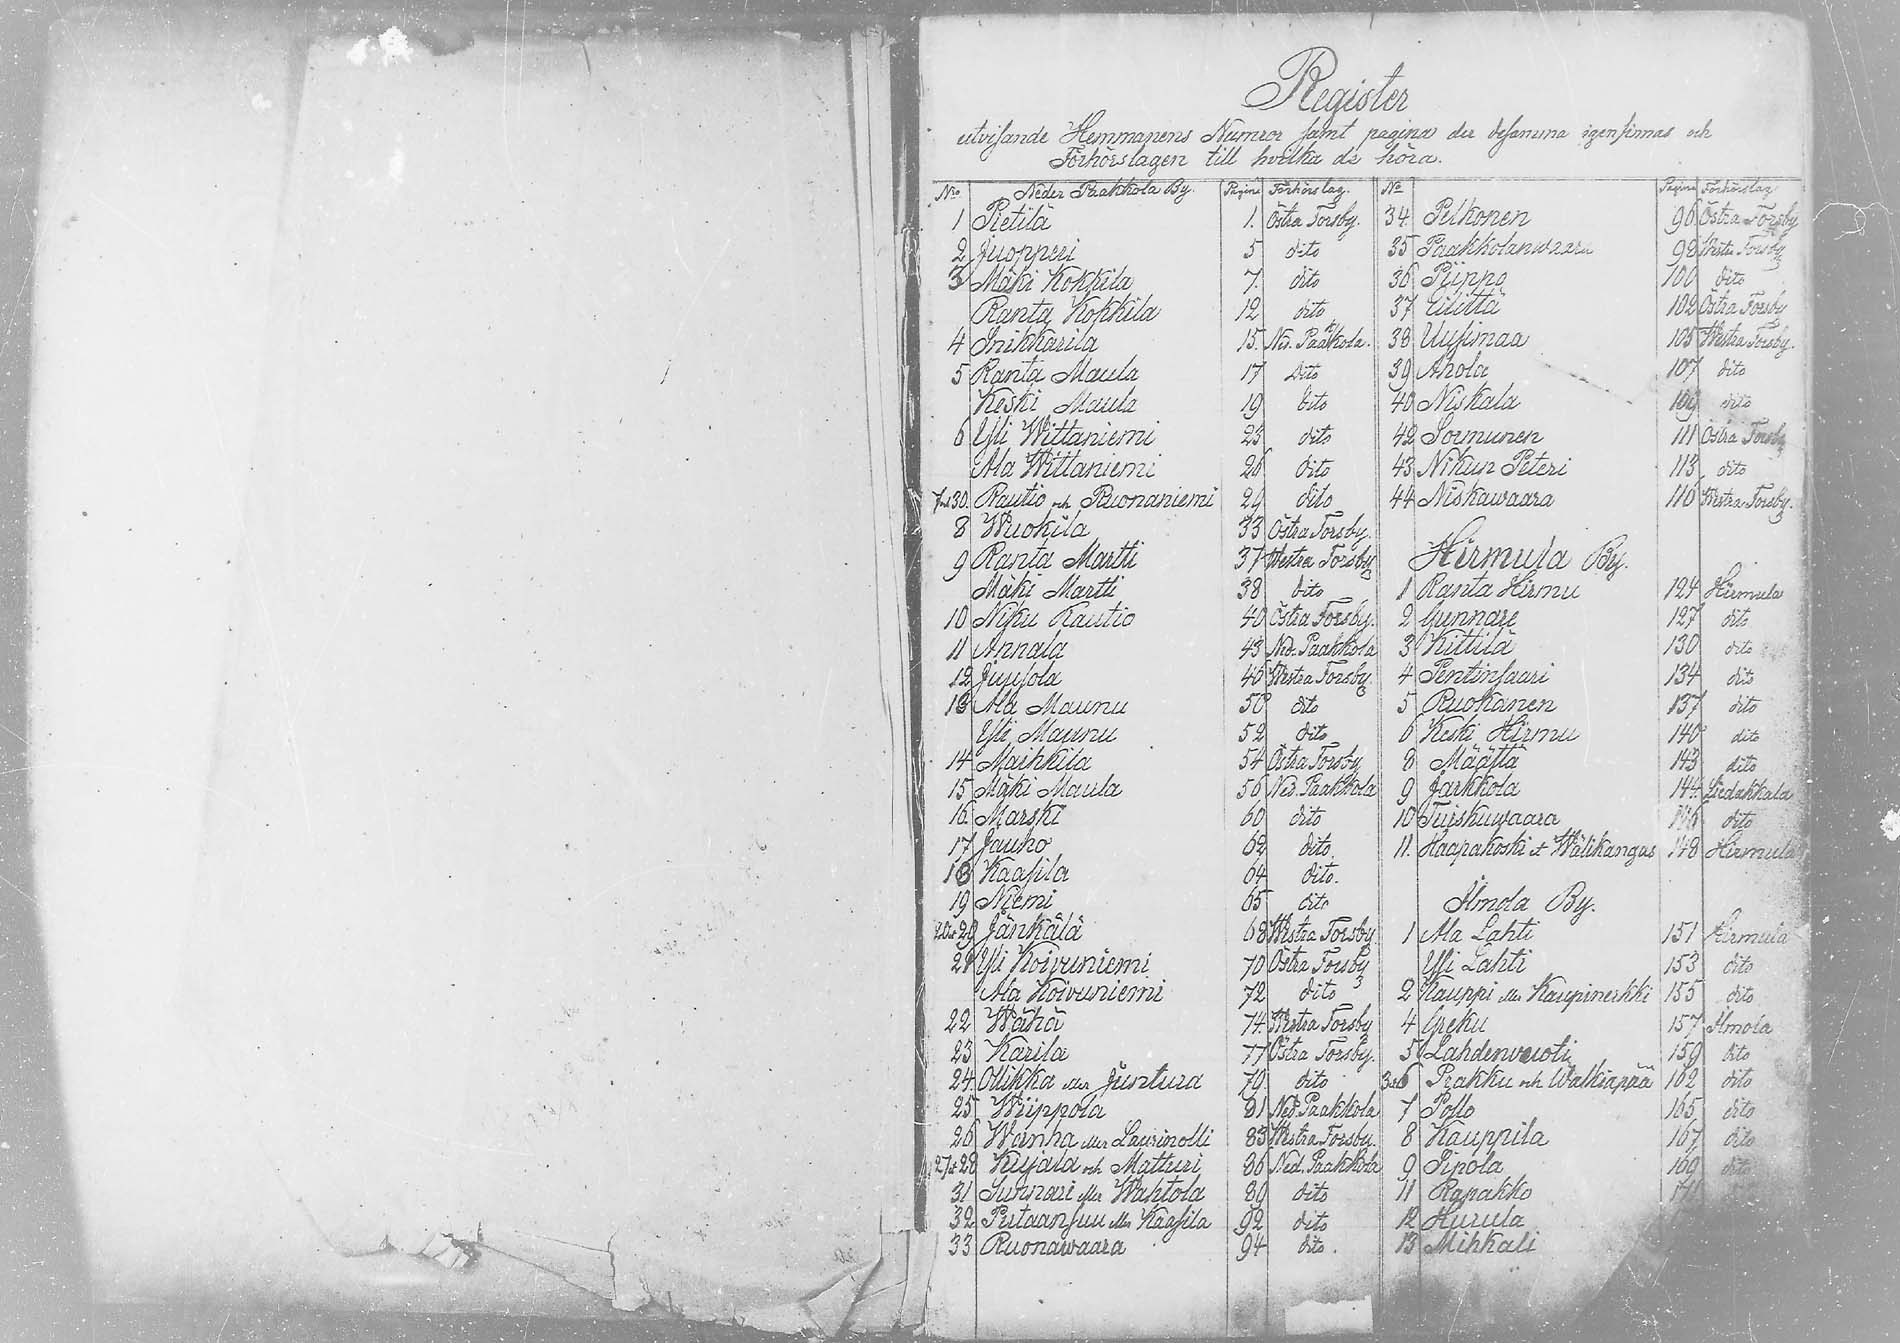 Register
utvisande Hemmanens Numror samt pagina der desamma igenfinnas och
Förhörslagen till hvilka de höra.
No Neder Paakkola By. Pagina Förhörslag.
1 Pietilä 1. Östra Forsby.
2 Juopperi 5 dito
3 Mäki Kokkila 7. dito
Ranta Kokkila 12 dito
4 Snikkarila 15. Ned. Paakkola.
5 Ranta Maula 17 Dito
Keski Maula 19 dito
6 Yli Wittaniemi 23 dito
Ala Wittaniemi 26 dito
7 et 30. Rautio och Ruonaniemi 29 dito
8 Wuokila 33 Östra Forsby.
9 Ranta Martti 37 Westra Forsby
Mäki Martti 38 dito
10 Niku Rautio 40 Östra Forsby.
11 Annala 43 Ned. Paakkola
12 Juujola 46 Westra Forsby
13 Ala Maunu 50 dito
Yli Maunu 52 dito
14 Maihkila 54 Östra Forsby
15 Mäki Maula 56 Ned. Paakkola
16. Marski 60 dito
17 Jauho 62 dito
18 Kaasila 64 dito.
19 Niemi 65 dito
20 et 29 Jänkälä 68 Westra Forsby
21 Yli Koivuniemi 70 Östra Forsby
Ala Koivuniemi 72 dito
22 Wähä 74. Westra Forsby
23 Karila 77 Östra Forsby.
24. Ollikka eller Juntura 79 dito
25 Wiippola 81 Ned. Paakkola
26 Wanha eller Laurinolli 83 Westra Forsby.
27 et 28 Kujala och Matturi 86 Ned. Paakkola
31 Suvnari eller Wahtola 89 dito
32 Pertaansuu eller Kaasila 92 dito
33 Ruonawaara 94 dito.
No Pagina Förhörslag
34. Pelkonen 96 Östra Forsby
35 Paakkolanwaara 98 Westra Forsby
36 Piippo 100 dito
37 Ulittä 102 Östra Forsby
38 Uusimaa 105 Westra Forsby.
39 Ahola 107 dito
40 Niskala 109 dito
42 Sormunen 111 Östra Forsby
43 Nikun Peteri 113 dito
44 Niskawaara 116 Westra Forsby.
Hirmula By.
1 Ranta Hirmu 124 Hirmula
2 Gunnare 127 dito
3 Kittilä 130 dito
4 Pentinsaari 134 dito
5 Ruokanen 137 dito
6 Keski Hirmu 140 dito
8 Määttä 143 dito
9 Jarkkola 144. Liedakkala
10 Turskuwaara 146 dito
11. Haapakoski et Wälikangas 148 Hirmula
Ilmola By.
1 Ala Lahti 151 Hirmula
Yli Lahti 153 dito
2 Kauppi eller Kaupinerkki 155 dito
4 Greku 157 Ilmola
5 Lahdenvuoti 159 dito
3 et 6 Prakku och Walkiapää 162 dito
7 Pollo 165 dito
8 Kauppila 167 dito
9 Sipola 169 dito
11 Rapakko 171
12 Hurula
13 Mihkali